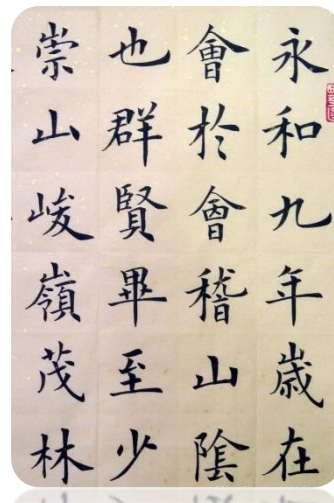 永和九年歲在
會於會稽山陰
也群賢畢至少
崇山峻嶺茂林